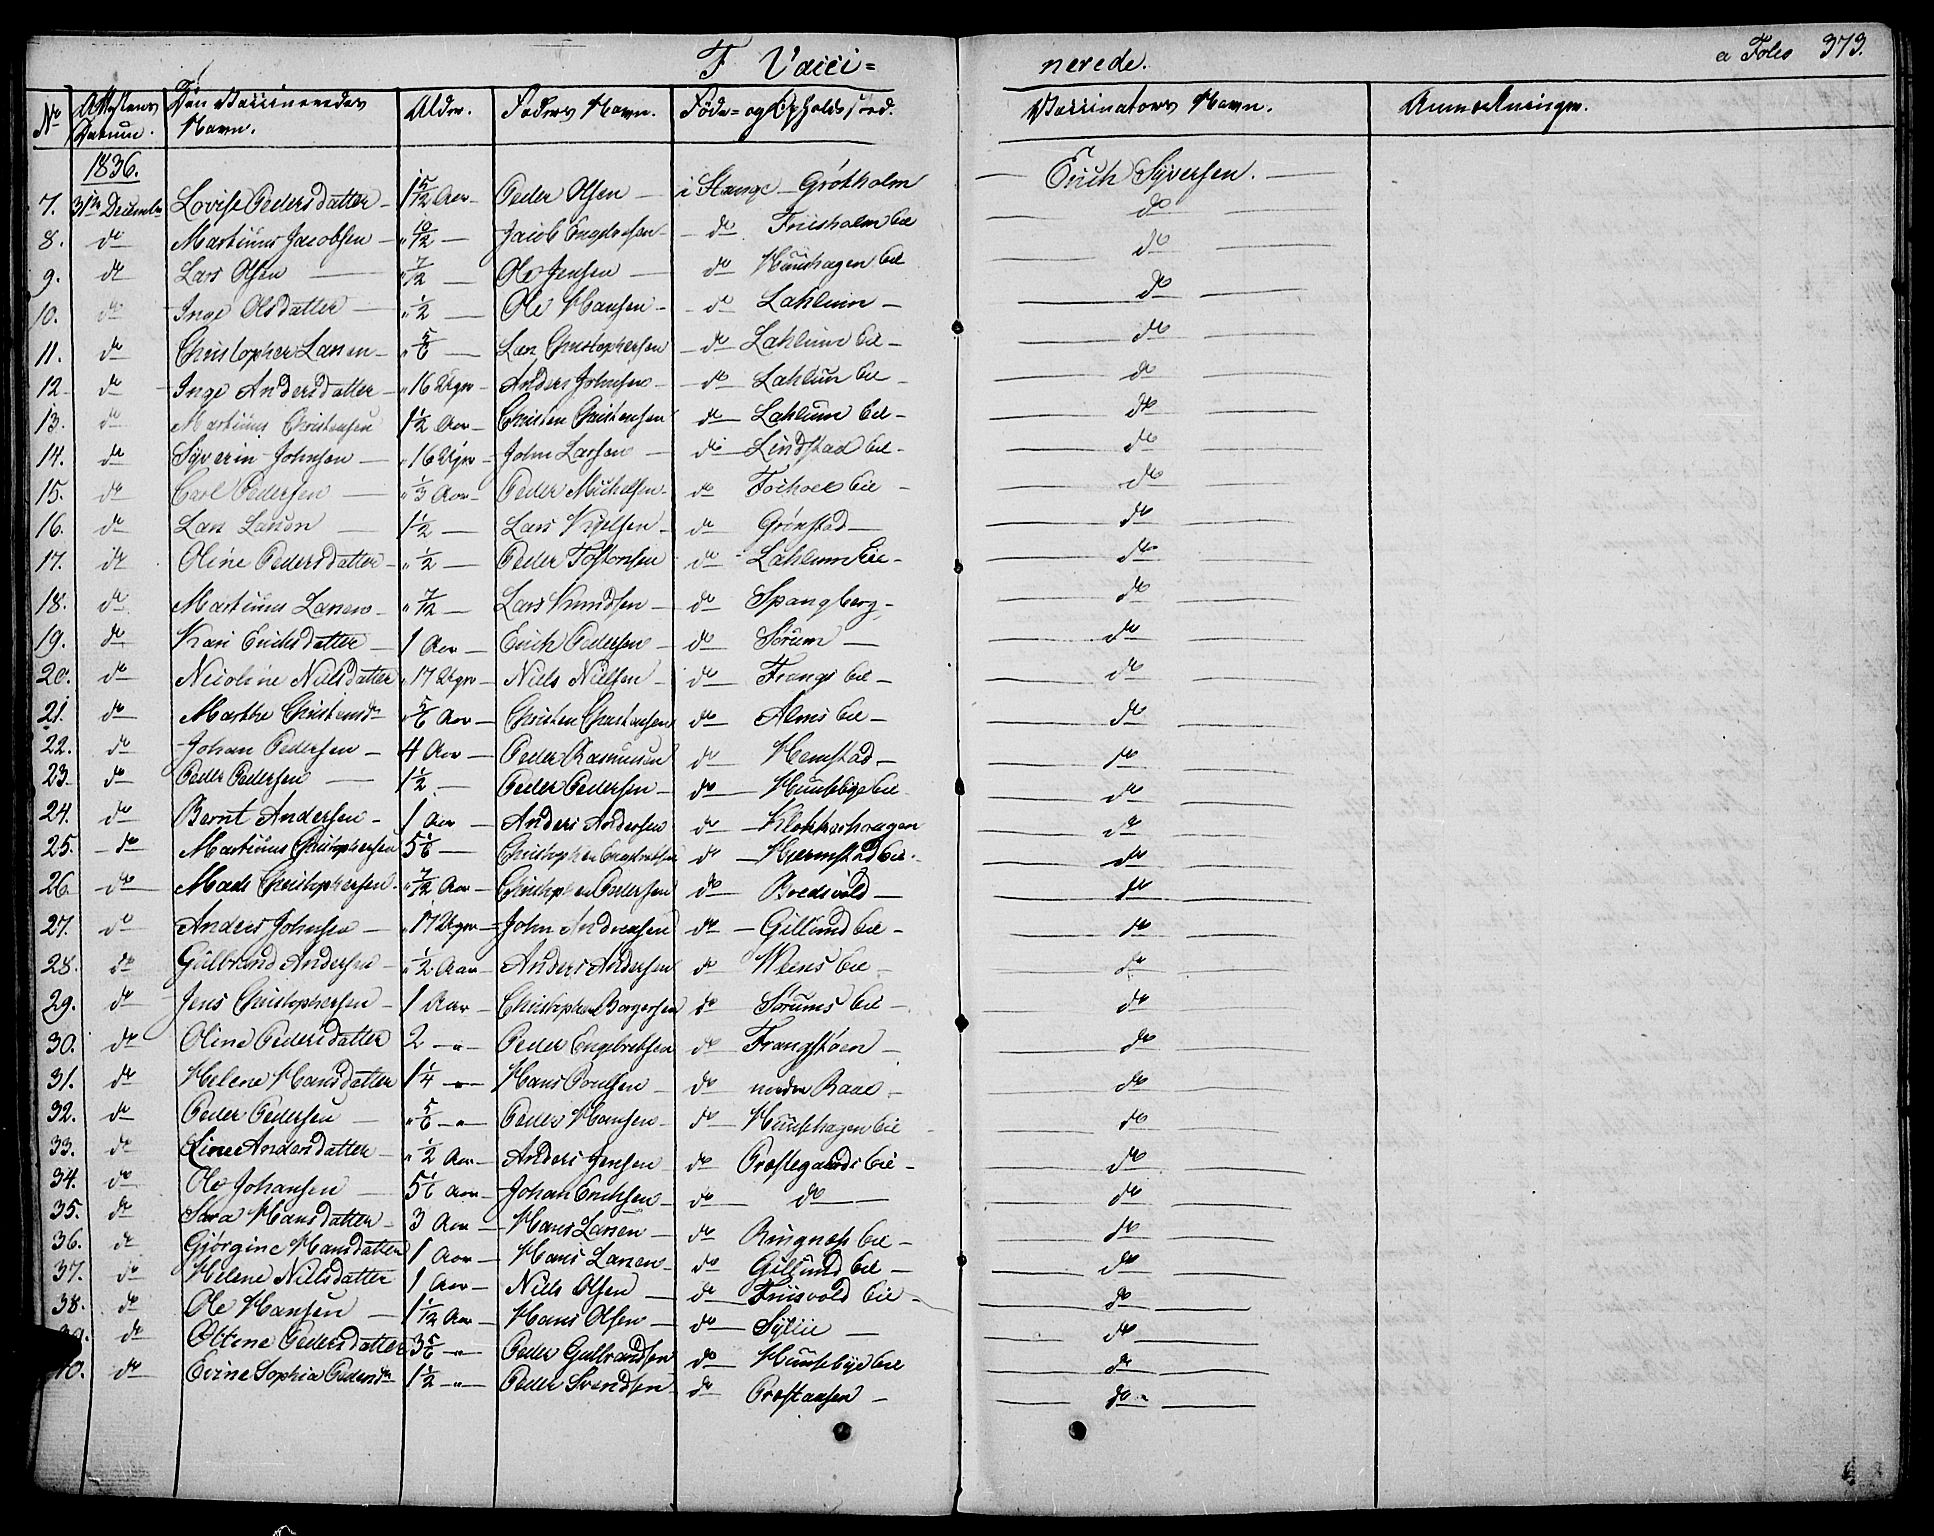 F. Vacci= nerede. a Folio 373.
No Attestens Datum. Den Vaccineredes Navn. Alder. Faders Navn. Føde= og Opholdssted. Vaccinators Navn. Anmærkninger.
1836.
7. 31te Decembr Lovise Pedersdatter 1 5/12 Aar Peder Olsen i Stange Grótholm Erich Syversen.
8. do Martinus Jacobsen " 10/12 Jacob Engebretsen do Friisholm Eie do
9. do Lars Olsen " 7/12 Ole Jensen do Huushagen Eie do
10. do Inge Olsdatter " 1/2 Ole Hansen do Lahlum do
11. do Christopher Larsen " 5/6 Lars Christophersen do Lahlum Eie do
12. do Inge Andersdatter " 16 Uger Anders Johnsen do Lahlum Eie do
13. do Martinus Christensen 1 1/2 Aar Christen Christensen do Lahlum Eie do
14. do Syverin Johnsen " 16 Uger John Larsen do Lindstad Eie do
15. do Carl Pedersen " 1/3 Aar Peder Michelsen do Fochoel Eie do
16. do Lars Larsen 1 1/2 Lars Kjelsen do Grinstad do
17. do Oline Pedersdatter " 1/2 Peder Tostensen do Lahlum Eie do
18. do Martinus Larsen " 7/12 Lars Knudsen do Spangberg do
19. do Kari Erichsdatter 1 Aar Erich Pedersen do Sørum do
20. do Nicoline Nielsdatter " 17 Uger Niels Nielsen do Frangs Eie do
21. do Marthe Christensdr " 5/6 Aar Christen Christensen do Alms Eie do
22. do Johan Pedersen 4 Aar Peder Rasmusen do Hemstad do
23. do Peder Pedersen 1 1/2 Peder Pedersen do Huusebye Eie do
24. do Bernt Andersen 1 Aar Anders Andersen do Klokkerhaugen do
25. do Martinus Christophersen 5 1/6 Christopher Engebretsen do Hjermstad Eie do
26. do Mads Christophersen " 7/12 Aar Christopher Pedersen do Bredsvold do
27. do Anders Johnsen " 17 Uger John Andreasen do Gillund Eie do
28. do Gulbrand Andersen " 1/2 Aar Anders Andersen do Weens Eie do
29. do Jens Christophersen 1 Aar Christopher Borgersen do Sørums Eie do
30. do Oline Pedersdatter 2 " Peder Engebretsen do Frangstøen do
31. do Helene Hansdatter 1 1/4 " Hans Poulsen do nordre Raae do
32. do Peder Pedersen " 5/6 " Peder Hansen do Huushagen Eie do
33. do Line Andersdatter " 1/2 Aar Anders Jensen do Præstegaards Eie do
34. do Ole Johansen 5 1/6 Aar Johan Erichsen do do do
35. do Sara Hansdatter 3 Aar Hans Larsen do Ringnæs Eie do
36. do Gjörgine Hansdatter 1 Aar Hans Larsen do Gillund Eie do
37. do Helene Nielsdatter 1 Aar Niels Olsen do Friisvold Eie do
38. do Ole Hansen 1 1/12 Aar Hans Olsen do Sylie do
39. do Oltene Pedersdatter 3 5/6 " Peder Gulbrandsen do Huusebye Eie do
40. do Evine Sophia Pedersdr 1 1/2 " Peder Svendsen do Præstaasen do